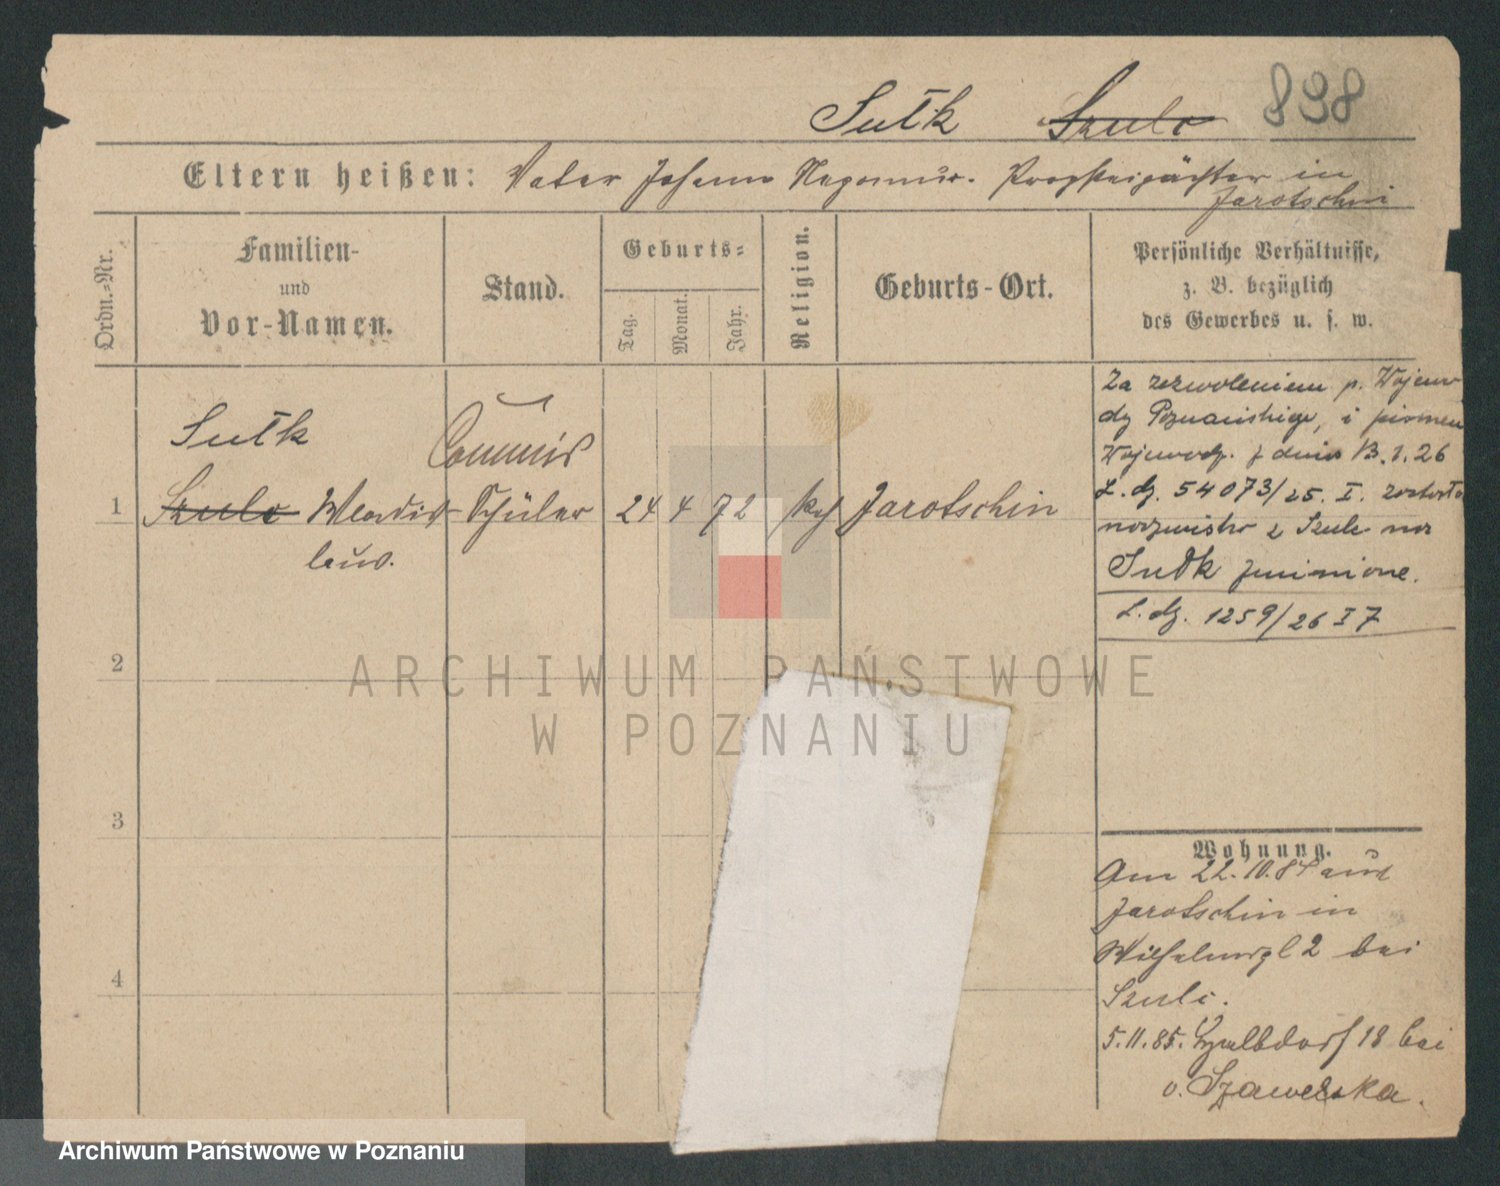 Sułk Szulc 898
Eltern heißen: Vater Johann in
Jarotschin
Ordn.-Nr.
Familien-
und
Vor-Namen.
Stand.
Geburts-
Tag. Monat. Jahr.
Religion.
Geburts-Ort.
Persönliche Verhältnisse,
z. B. bezüglich
des Gewerbes u. s. w.
Sułk Commis
1 Szulc Wladis- Schüler 24 4 72 kath Jarotschin
laus.
Za zezwoleniem p. Wojewo
dy Poznańskiego, i pismem
Wojewody z dnia 13.1.26
L. dz. 54073/25. I. został
nazwisko z Szulc na
Sułk zmienione.
L. dz. 1259/26 I 7
2
3
4
Wohnung.
Am 22.10.84 aus
Jarotschin in
Wilhelmspl 2 bei
Szulc.
5.11.85. 18 bei
v. Szawelska.
ARCHIWUM PAŃSTWOWE
W POZNANIU
Archiwum Państwowe w Poznaniu